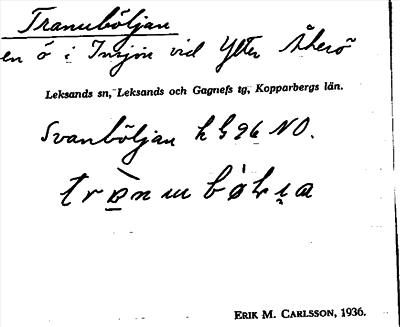 Tranuböljan
en ö i Insjön vid Ytter Åkerö
Leksands sn, Leksands och Gagnefs tg, Kopparbergs län.
Svanböljan NO.
ERIK M. CARLSSON, 1936.